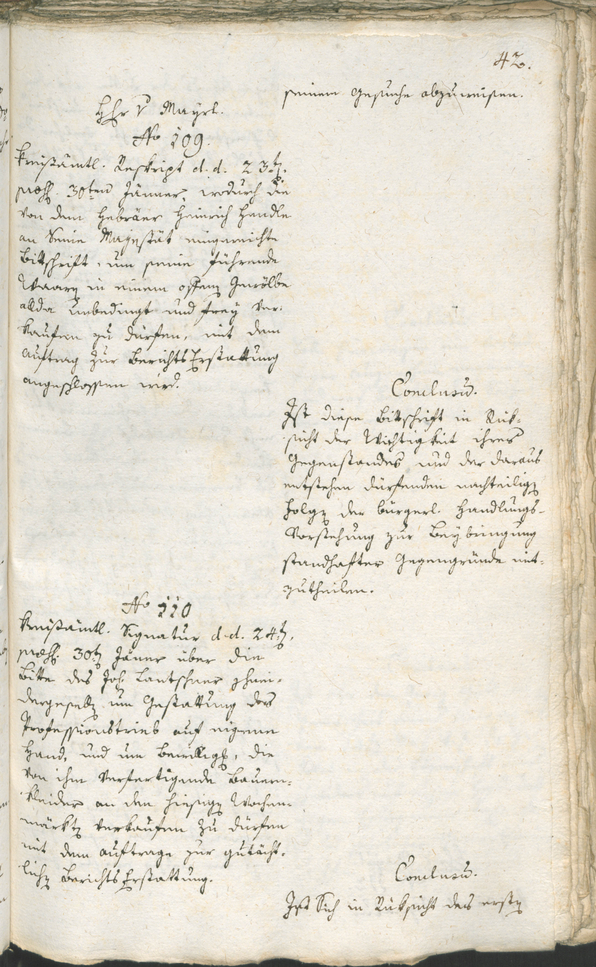 42.
seinem Gesuche abzuweisen.
Hr v Mayrl.
No 109.
Kreisämtl. Reskript d. d. 23t.
præs. 30ten Jänner, wodurch die
von dem Hebräer Heinrich Hendle
an Seine Majestät eingereichte
Bittschrift, um seine führende
Waare in einem offenen Gewölbe
allda unbedingt und frey ver-
kaufen zu dürfen, mit dem
Auftrag zur BerichtsErstattung
angeschlossen wird.
Conclusu.
Ist diese Bittschrift in Rük-
sicht der Wichtigkeit ihres
Gegenstandes, und der daraus
entstehen dürfenden nachteiligen
Folgen der bürgerl. Handlungs-
Vorstehung zur Beybringung
standhafter Gegengründe mit-
zutheilen.
No 110
Kreisämtl. Signatur d. d. 24t.
præs. 30t Jäner über die
Bitte des Joh. Lautschner
um Gestattung des
Professionstrieb auf eigene
Hand, und um Bewillig, die
von ihm verfertigende Bauern-
kleider an den hiesigen Wochen-
märkten verkaufen zu dürfen
mit dem Auftrage zur gutächt-
lichen BerichtsErstattung.
Conclusu.
Ist Sich in Rüksicht des ersten